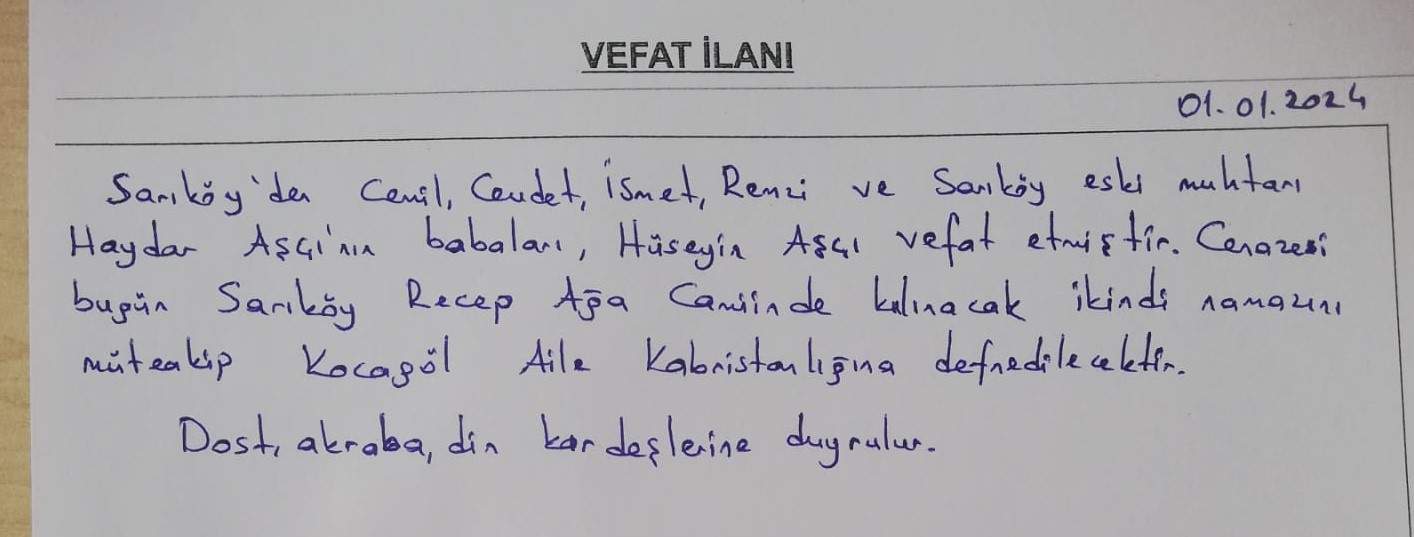 VEFAT İLANI
01.01.2024
Sarıköy'den Cemil, Cevdet, İsmet, Remzi ve Sarıköy eski muhtarı
Haydar AŞÇI'nın babaları, Hüseyin AŞÇI vefat etmiştir. Cenazesi
bugün Sarıköy Recep Ağa Camiinde kılınacak ikindi namazını
müteakip Kocagöl Aile Kabristanlığına defnedilecektir.
Dost, akraba, din kardeşlerine duyrulur.